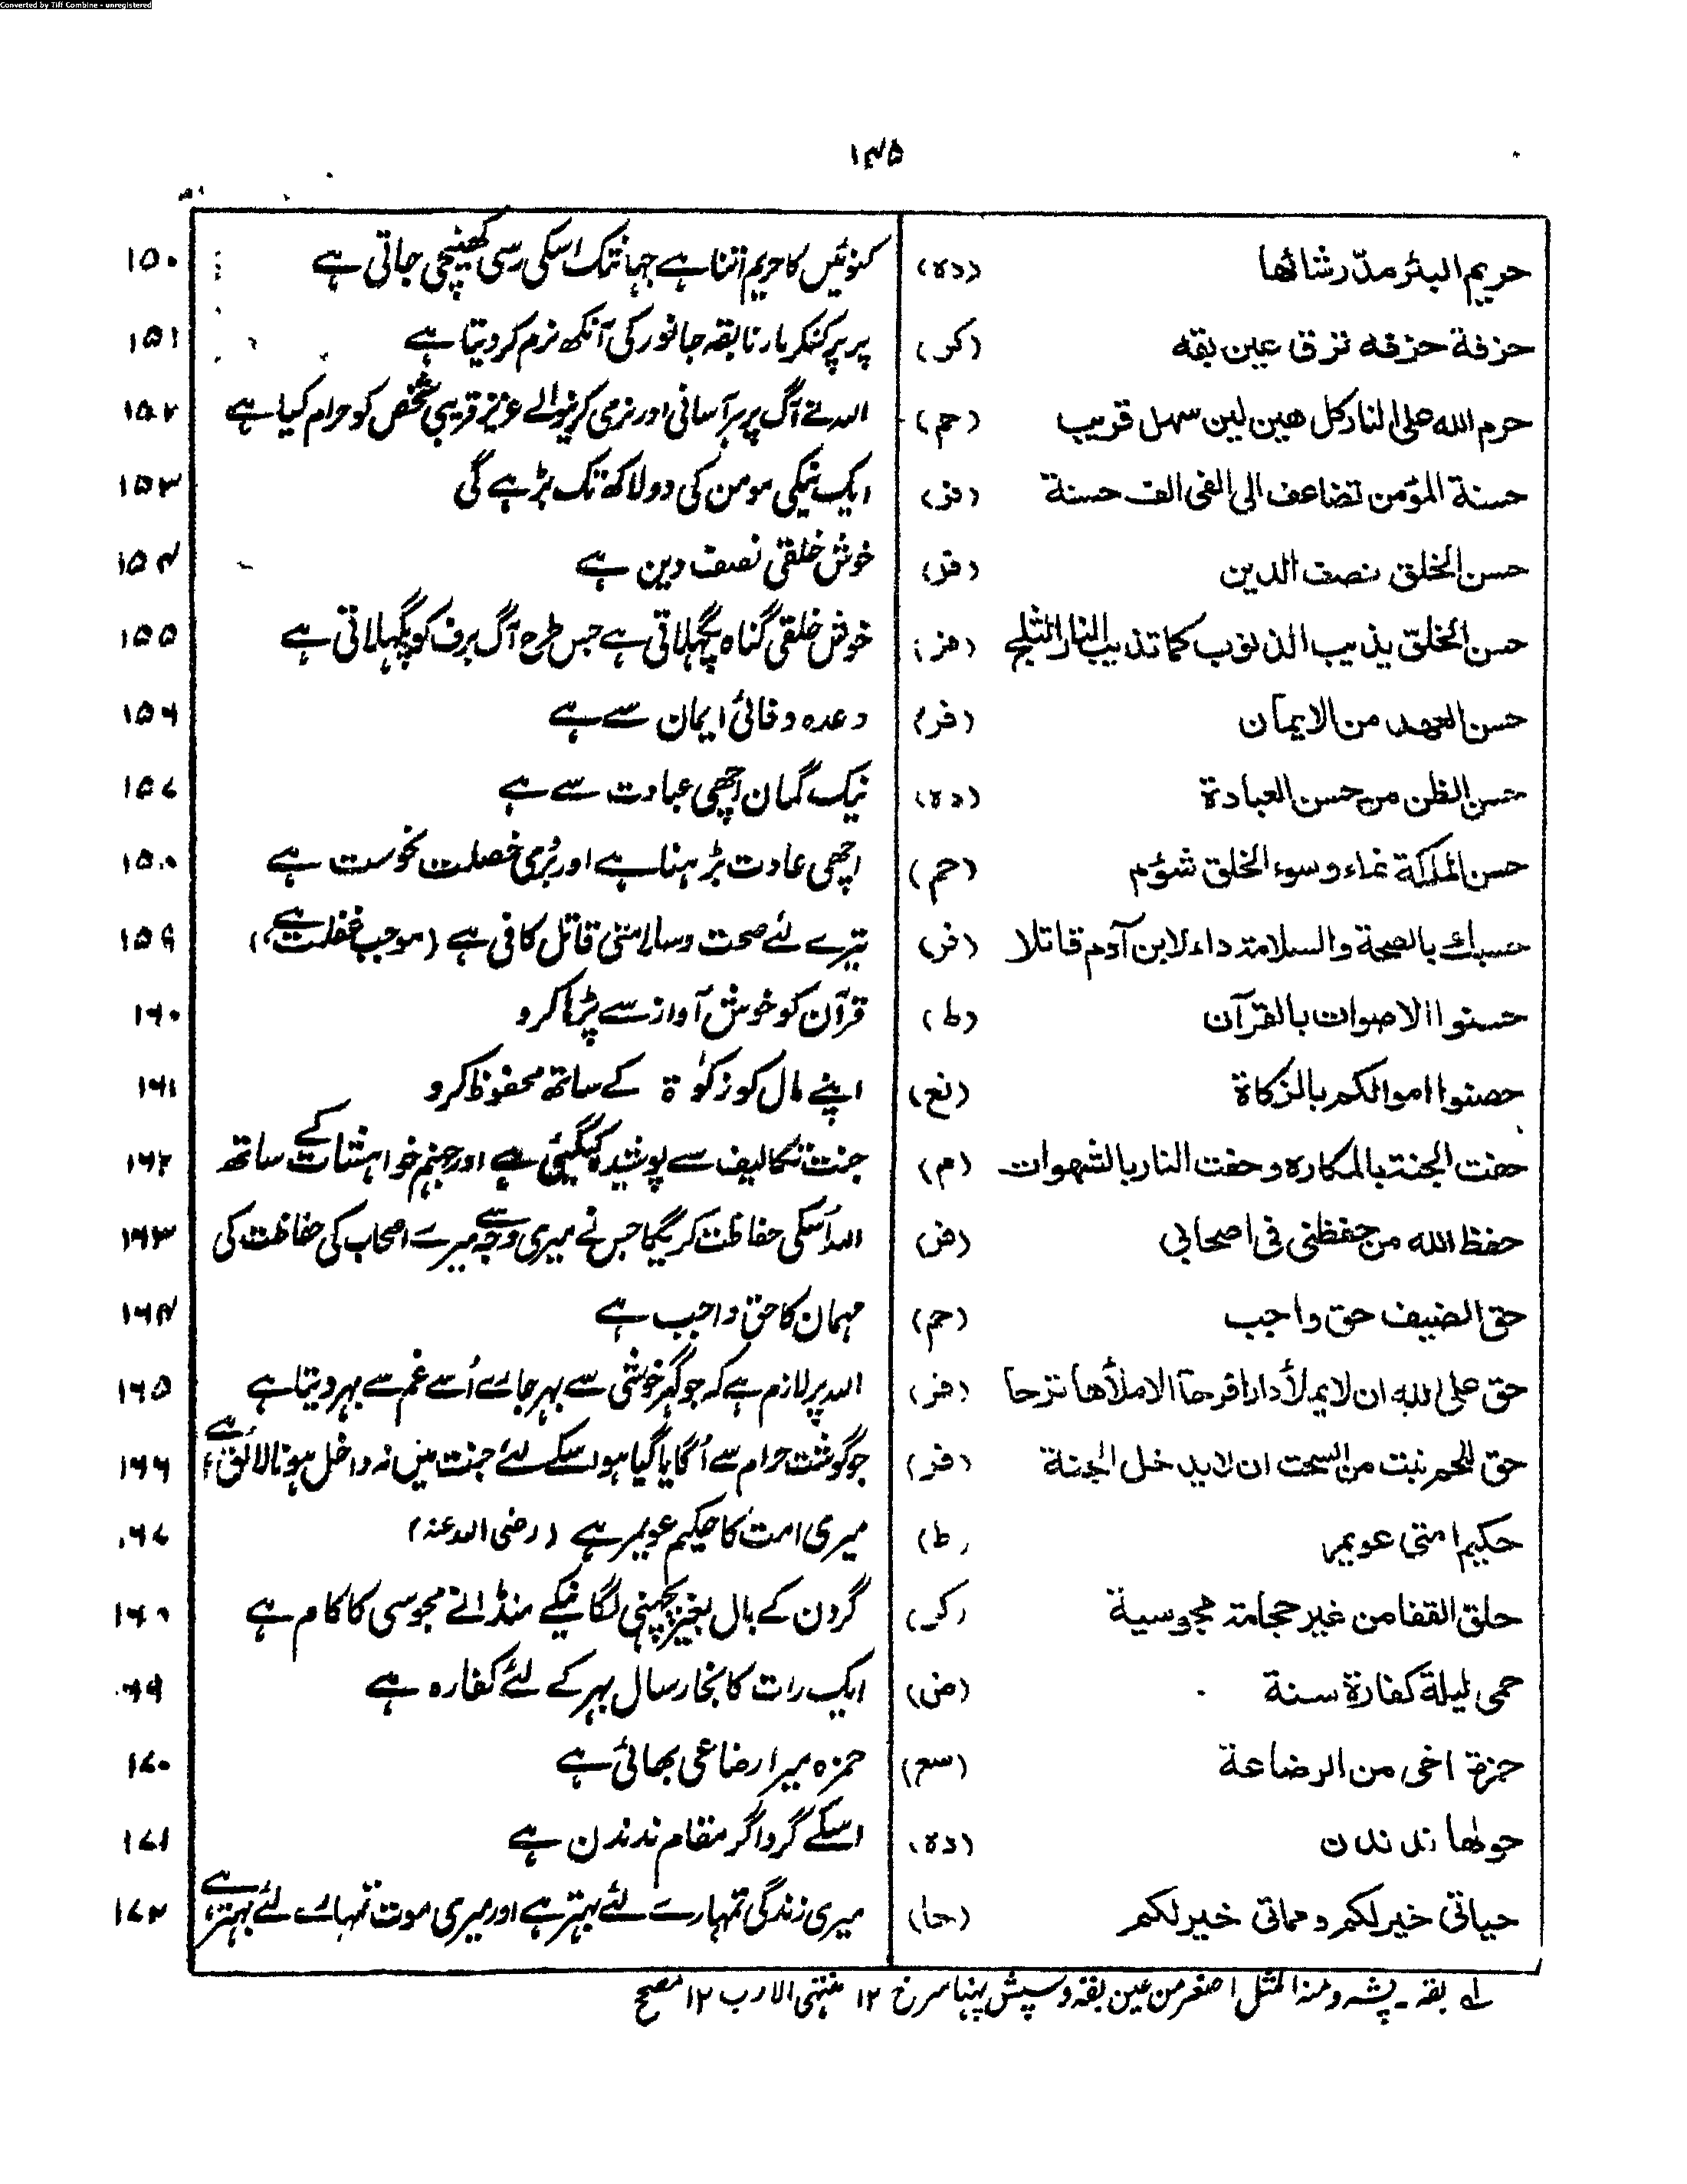 Converted by Tiff Combine - unregistered
۱۴۵
حریم البئر مدّ رشائها (دہ) کنوئیں کا حریم اتنا ہے جہانتک اسکی رسی کھینچی جاتی ہے ۱۵۰
حزقة حزقه ترق عین بقه (کر) پر پر کنکر مارنا بقہ جانور کی آنکھ نرم کر دیتا ہے ۱۵۱
حرم الله علی النار کل هین لین سهل قریب (حم) اللہ نے آگ پر ہر آسانی اور نرمی کرنیوالے عزیز قریبی شخص کو حرام کیا ہے ۱۵۲
حسنة المؤمن تضاعف الی الفی الف حسنة (فر) ایک نیکی مومن کی دو لاکھ تک بڑہے گی ۱۵۳
حسن الخلق نصف الدین (فر) خوش خلقی نصف دین ہے ۱۵۴
حسن الخلق یذیب الذنوب کما تذیب النار الثلج (فر) خوش خلقی گناہ پگہلاتی ہے جس طرح آگ برف کو پگہلاتی ہے ۱۵۵
حسن العهد من الایمان (فر) وعدہ وفائی ایمان سے ہے ۱۵۶
حسن الظن من حسن العبادة (دہ) نیک گمان اچھی عبادت سے ہے ۱۵۷
حسن الملکة نماء و سوء الخلق شؤم (حم) اچھی عادت بڑہنا ہے اور بُری خصلت نحوست ہے ۱۵۸
حسبك بالصحة والسلامة داء لابن آدم قاتلا (فر) تیرے لئے صحت وسلامتی قاتل کافی ہے (موجب غفلت ہے) ۱۵۹
حسنوا الاصوات بالقرآن (ط) قرآن کو خوش آواز سے پڑہا کرو ۱۶۰
حصنوا اموالکم بالزکاة (نع) اپنے مال کو زکوٰة کے ساتھ محفوظ کرو ۱۶۱
حفت الجنة بالمکاره و حفت النار بالشهوات (م) جنت تکالیف سے پوشیدہ کیگئی ہے اور جہنم خواہشات کے ساتھ ۱۶۲
حفظ الله من حفظنی فی اصحابی (فر) اللہ اُسکی حفاظت کریگا جس نے میری وجہ سے میرے اصحاب کی حفاظت کی ۱۶۳
حق الضیف حق واجب (حم) مہمان کا حق واجب ہے ۱۶۴
حق علی الله ان لا یملأ دارا فرحا الا ملأها ترحا (فر) اللہ پر لازم ہے کہ جو گہر خوشی سے بہر جاے اُسے غم سے بہر دیتا ہے ۱۶۵
حق للحم نبت من السحت ان لا یدخل الجنة (فر) جو گوشت حرام سے اُگایا گیا ہو اسکے لئے جنت میں نہ داخل ہونا لائق ہے ۱۶۶
حکیم امتی عویمر (ط) میری امت کا حکیم عویمر ہے (رضی اللہ عنہ) ۱۶۷
حلق القفا من غیر حجامة مجوسیة (کر) گردن کے بال بغیر پچہنی لگانیکے منڈانے مجوسی کا کام ہے ۱۶۸
حمی لیلة کفارة سنة (ض) ایک رات کا بخار سال بہر کے لئے کفارہ ہے ۱۶۹
حمزة اخی من الرضاعة (سع) حمزہ میرا رضاعی بھائی ہے ۱۷۰
حولها ندندن (دہ) اسکے گرداگر مقام ندندن ہے ۱۷۱
حیاتی خیر لکم و مماتی خیر لکم (حا) میری زندگی تمہارے لئے بہتر ہے اور میری موت تمہارے لئے بہتر ہے ۱۷۲
لہ بقہ ـ پشہ ومنہ المثل اصغر من عین بقه و سپش پہنا سرخ ۱۲ منتہی الارب ۱۲ مصحح